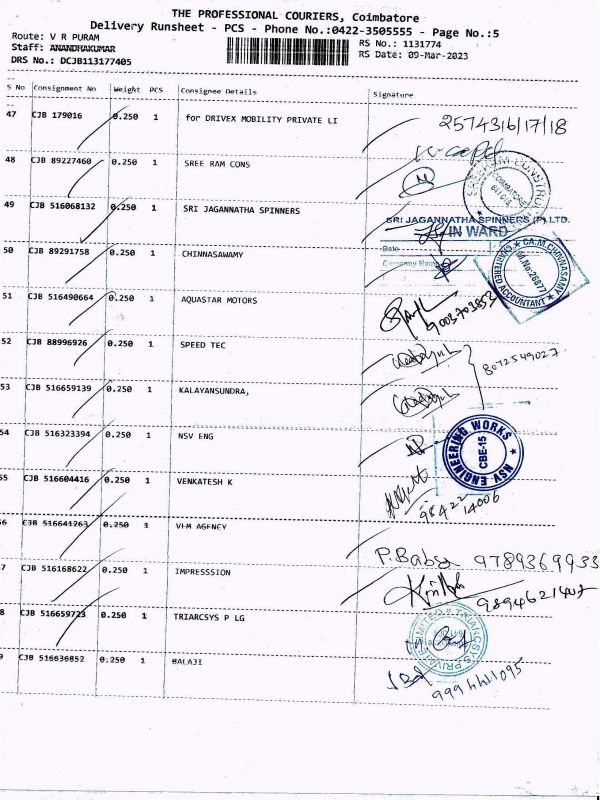 THE PROFESSIONAL COURIERS, Coimbatore
Delivery Runsheet - PCS - Phone No.:0422-3505555 - Page No.:5
Route: V R PURAM
Staff: ANANDHAKUMAR
DRS No.: DCJB113177405
RS No.: 1131774
RS Date: 09-Mar-2023
S No Consignment No Weight PCS Consignee Details Signature
47 CJB 179016 0.250 1 for DRIVEX MOBILITY PRIVATE LI 2574316/17/18
48 CJB 89227460 0.250 1 SREE RAM CONS
49 CJB 516068132 0.250 1 SRI JAGANNATHA SPINNERS
SRI JAGANNATHA SPINNERS (P) LTD.
IN WARD
Date
50 CJB 89291758 0.250 1 CHINNASAWAMY
CA.M.CHINNASAMY
M.No:26877
CHARTERED ACCOUNTANT
51 CJB 516490664 0.250 1 AQUASTAR MOTORS 9003703853
52 CJB 88996926 0.250 1 SPEED TEC 8072549027
53 CJB 516659139 0.250 1 KALAYANSUNDRA,
54 CJB 516323394 0.250 1 NSV ENG
NSV ENGINEERING WORKS
CBE-15
55 CJB 516604416 0.250 1 VENKATESH K 98422 14006
56 CJB 516641263 0.250 1 VHM AGENCY P. Babu 9789369933
7 CJB 516168622 0.250 1 IMPRESSSION
8 CJB 516659723 0.250 1 TRIARCSYS P LG
TRIARCSYS PRIVATE LIMITED
9 CJB 516636852 0.250 1 BALAJI